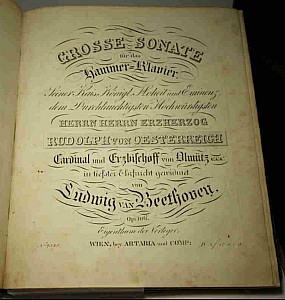 GROSSE SONATE
für das
Hammer-Klavier
Seiner Kais. Königl. Hoheit und Eminenz
dem Durchlauchtigsten Hochwürdigsten
HERRN HERRN ERZHERZOG
RUDOLPH VON OESTERREICH
Cardinal und Erzbischoff von Olmütz
in tiefster Ehrfurcht gewidmet
von
Ludwig VAN Beethoven.
Op: 106.
Eigenthum der Verleger.
WIEN, bey ARTARIA und COMP: